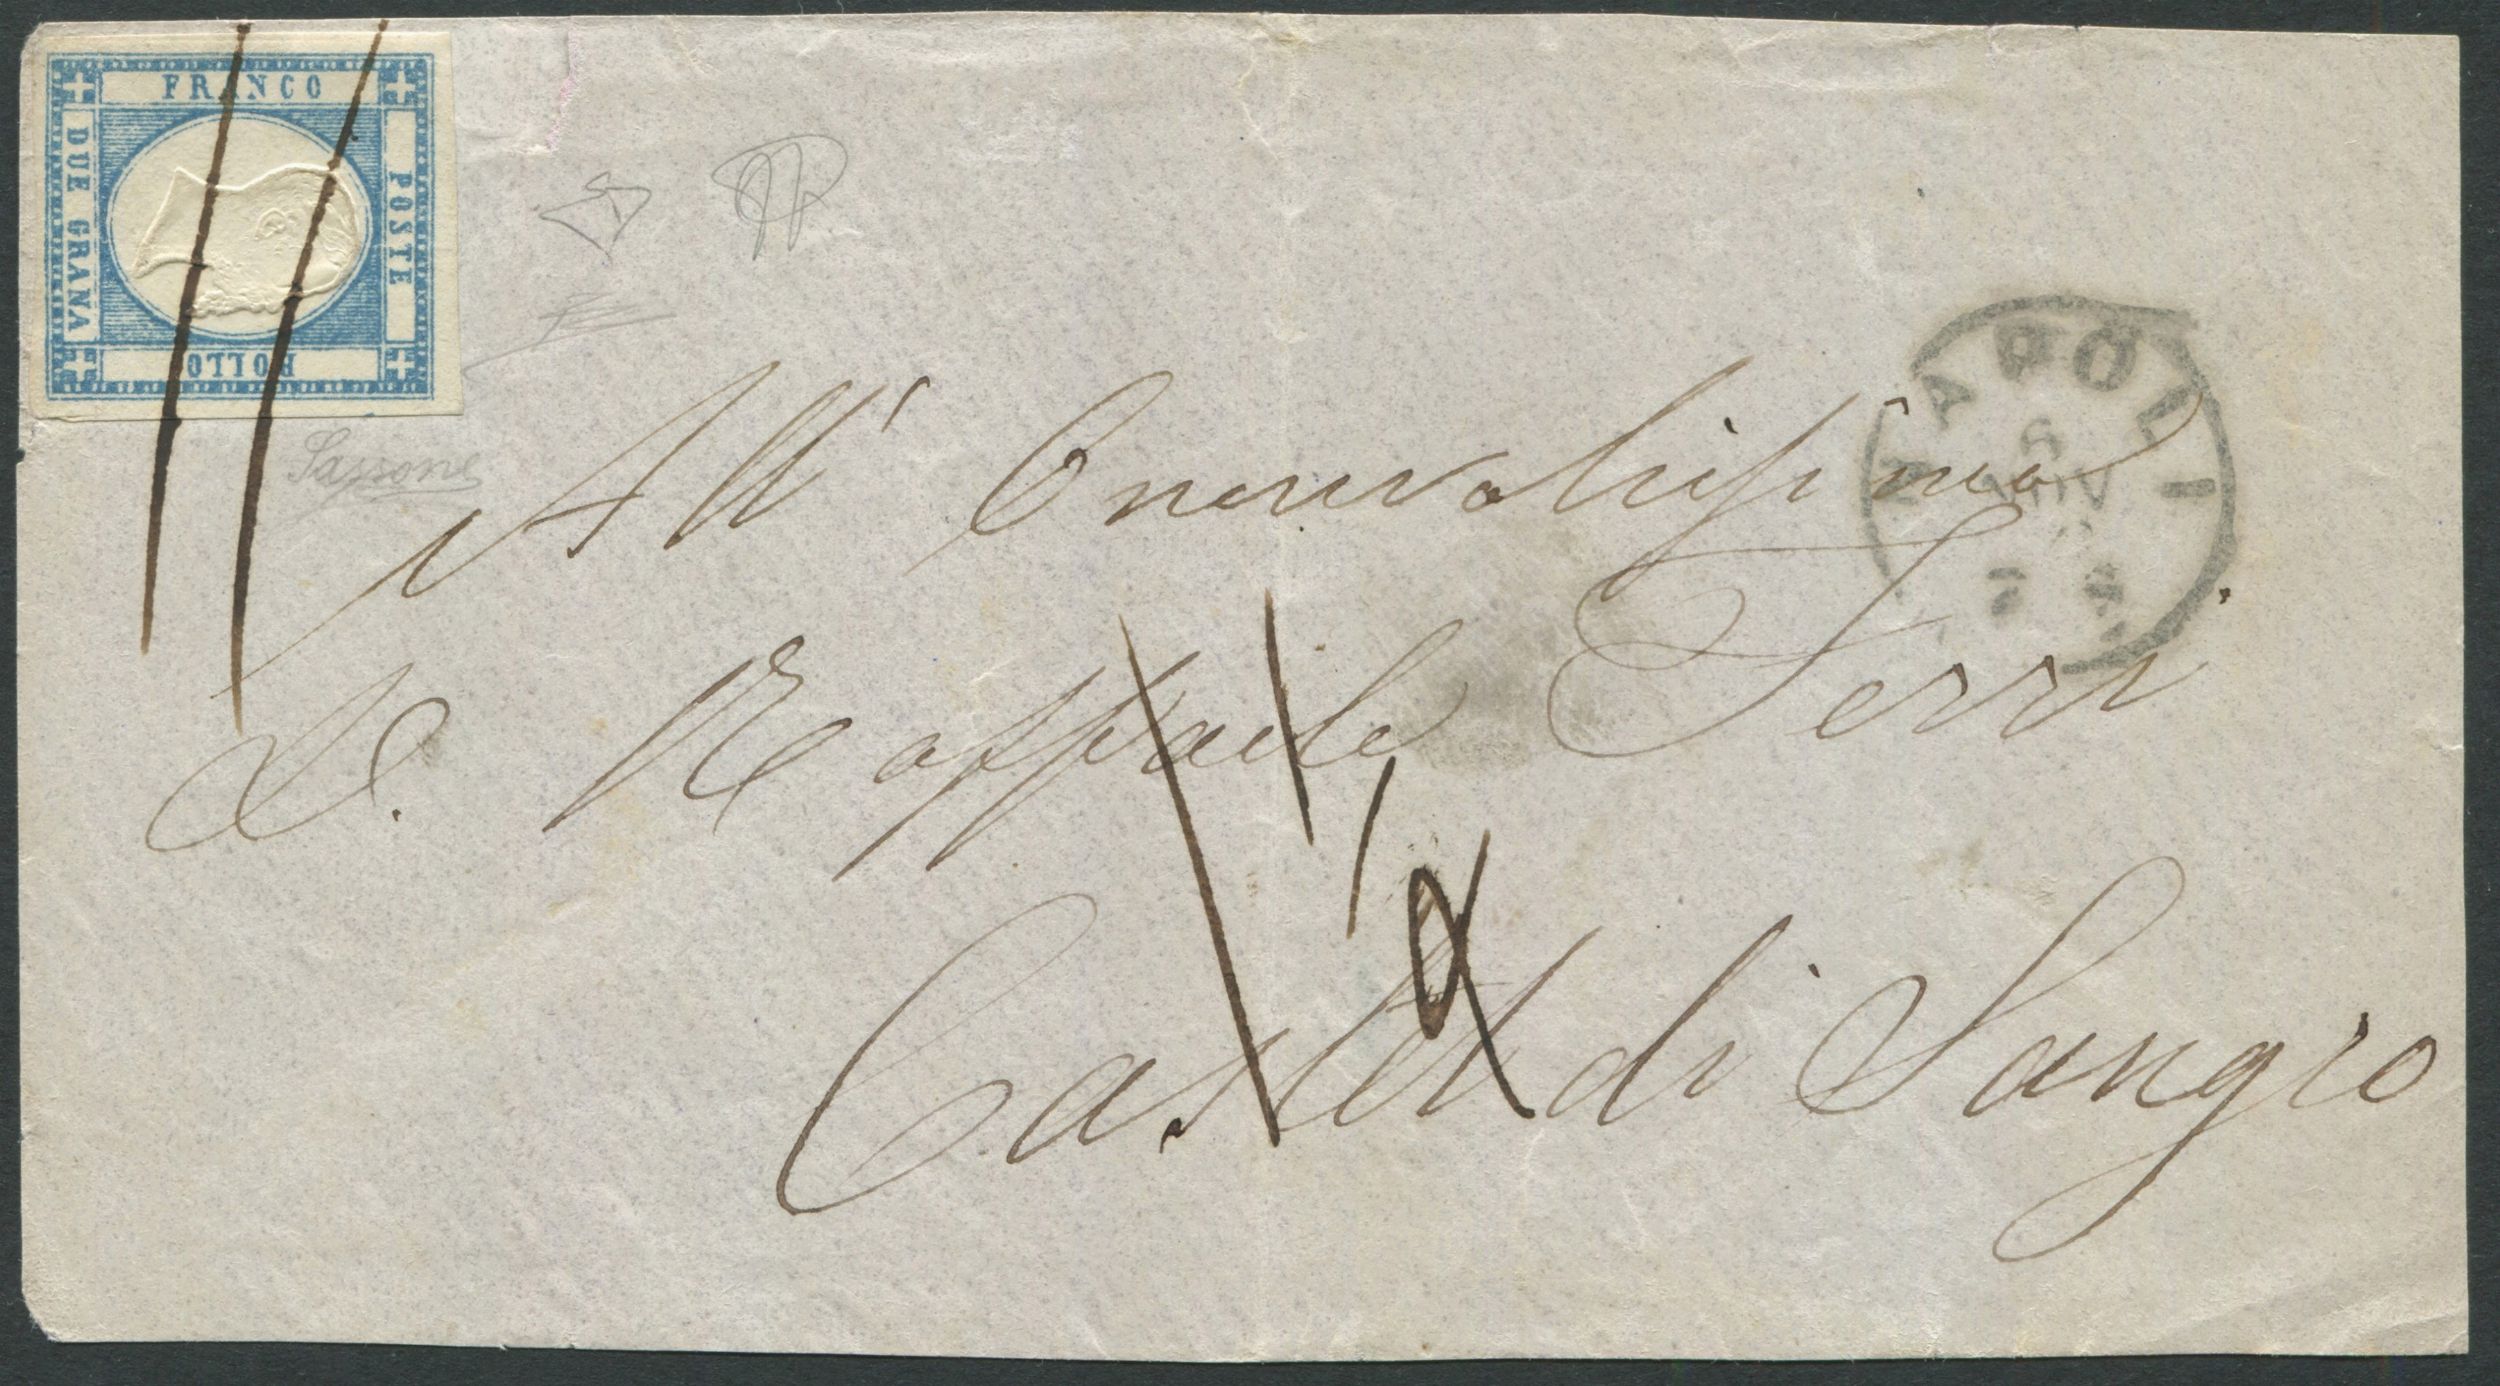 FRANCO
POSTE
DUE GRANA
BOLLO
Sassone
NAPOLI
6
NOV
All' Onorevolissimo
D. Raffaele Terri
Castel di Sangro